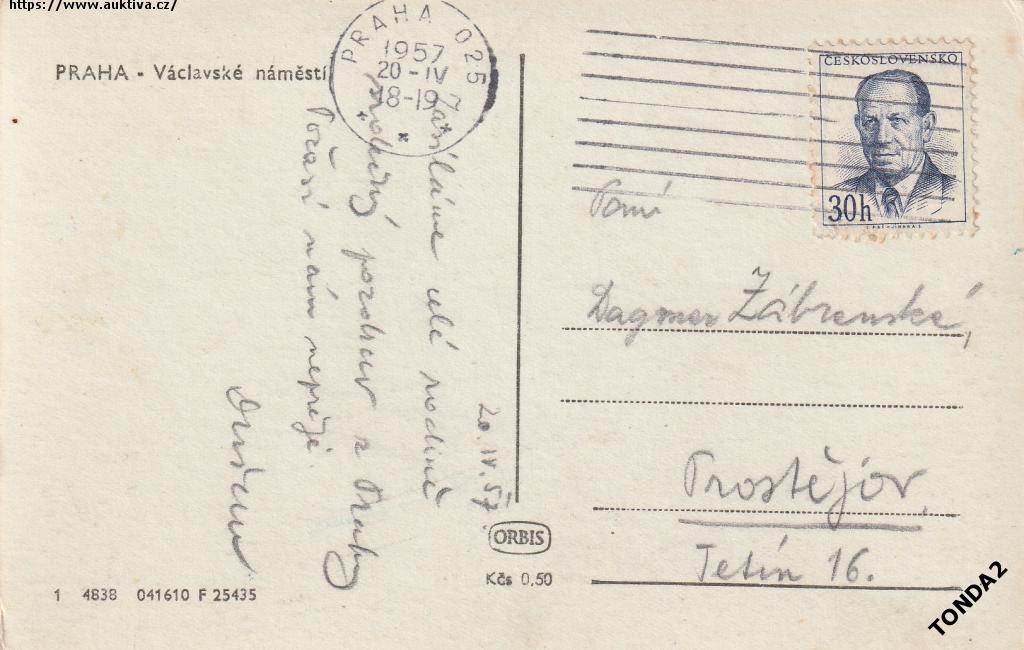 https://www.auktiva.cz/
PRAHA - Václavské náměstí
PRAHA 025
1957
20-IV
18-19
* *
ČESKOSLOVENSKO
30h
Zasíláme celé rodině
srdečný pozdrav z Prahy
Počasí nám nepřeje.
20.IV.57.
Paní
Dagmar Zábranská,
Prostějov,
Tetín 16.
ORBIS
Kčs 0,50
1 4838 041610 F 25435
TONDA2